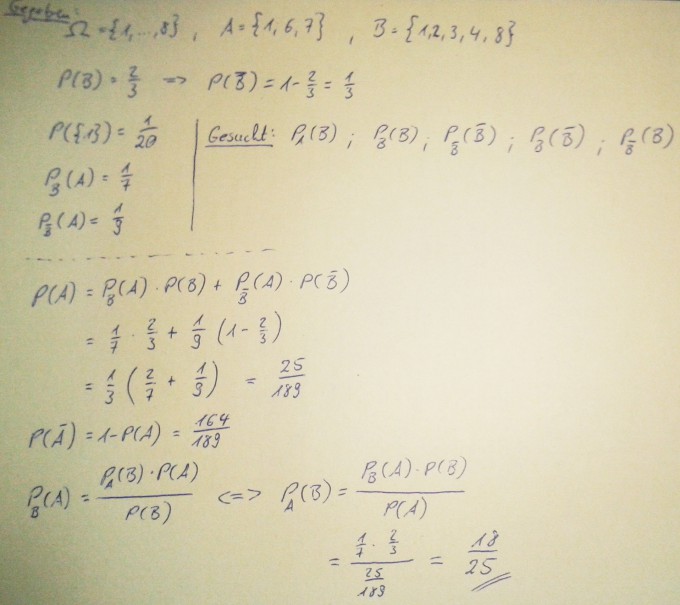 Gegeben:
Ω = {1,...,8} , A = {1,6,7} , B = {1,2,3,4,8}
P(B) = 2/3 => P(B̄) = 1 - 2/3 = 1/3
P({1}) = 1/20
Gesucht: P_A(B) ; P_B(B) ; P_B̄(B̄) ; P_B(B̄) ; P_B̄(B)
P_B(A) = 1/7
P_B̄(A) = 1/9
P(A) = P_B(A) · P(B) + P_B̄(A) · P(B̄)
= 1/7 · 2/3 + 1/9 (1 - 2/3)
= 1/3 (2/7 + 1/9) = 25/189
P(Ā) = 1 - P(A) = 164/189
P_B(A) = P_A(B) · P(A) / P(B) <=> P_A(B) = P_B(A) · P(B) / P(A)
= (1/7 · 2/3) / (25/189) = 18/25